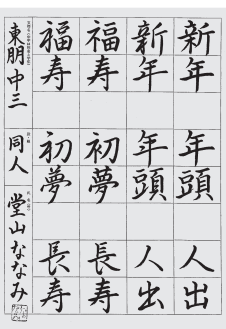 新年 年頭 人出
新年 年頭 人出
福寿 初夢 長寿
福寿 初夢 長寿
東朋中三 同人 堂山ななみ